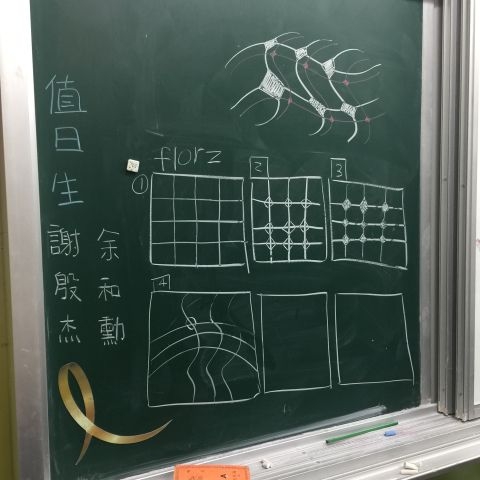 值日生
謝殷杰
余和勳
florz
① 2 3
4